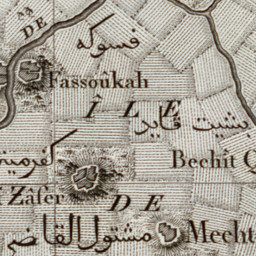 DE
فسوكه
Fassoûkah
ÎLE
بشيت قايد
Bechît
Zâfer
DE
مشتول القاضى
Mecht